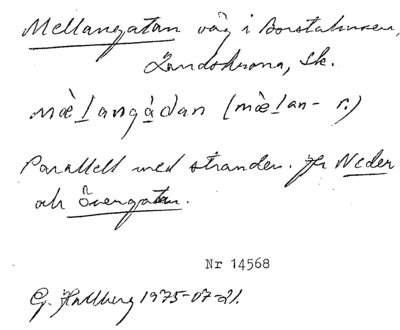 Mellangatan väg i Borstahusen,
Landskrona, Sk.
mæ̀langàdan (mæ̀lan- r.)
Parallell med stranden. Jfr Neder
och Övergatan.
Nr 14568
G. Hallberg 1975-07-21.